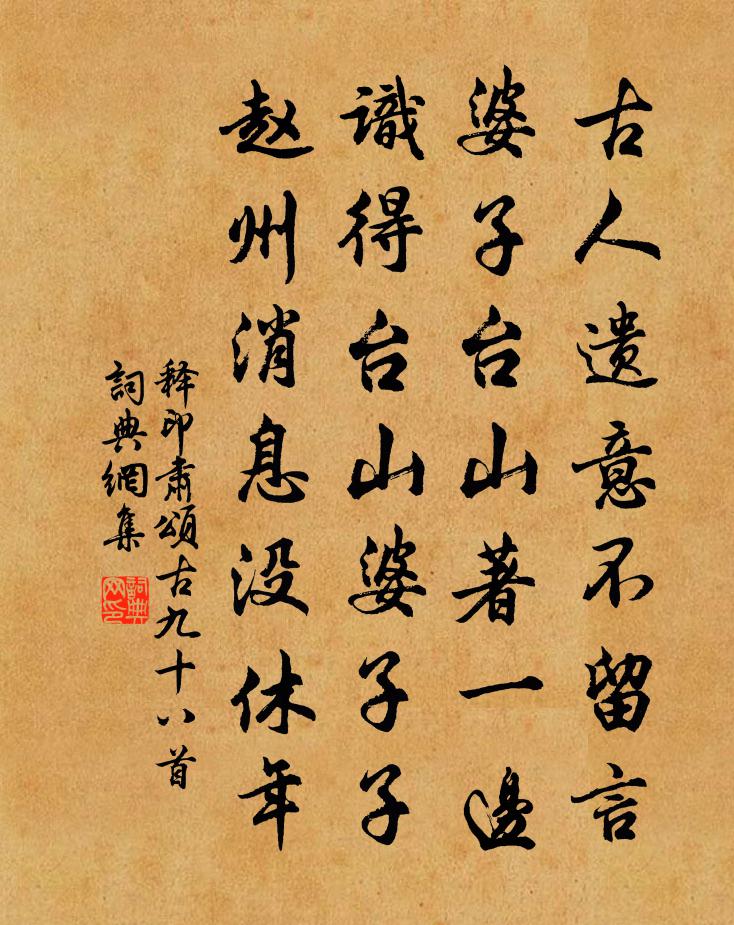 古人遗意不留言
婆子台山著一邊
識得台山婆子子
赵州消息没休年
释印肅頌古九十八首
詞典網集
詞典
网印